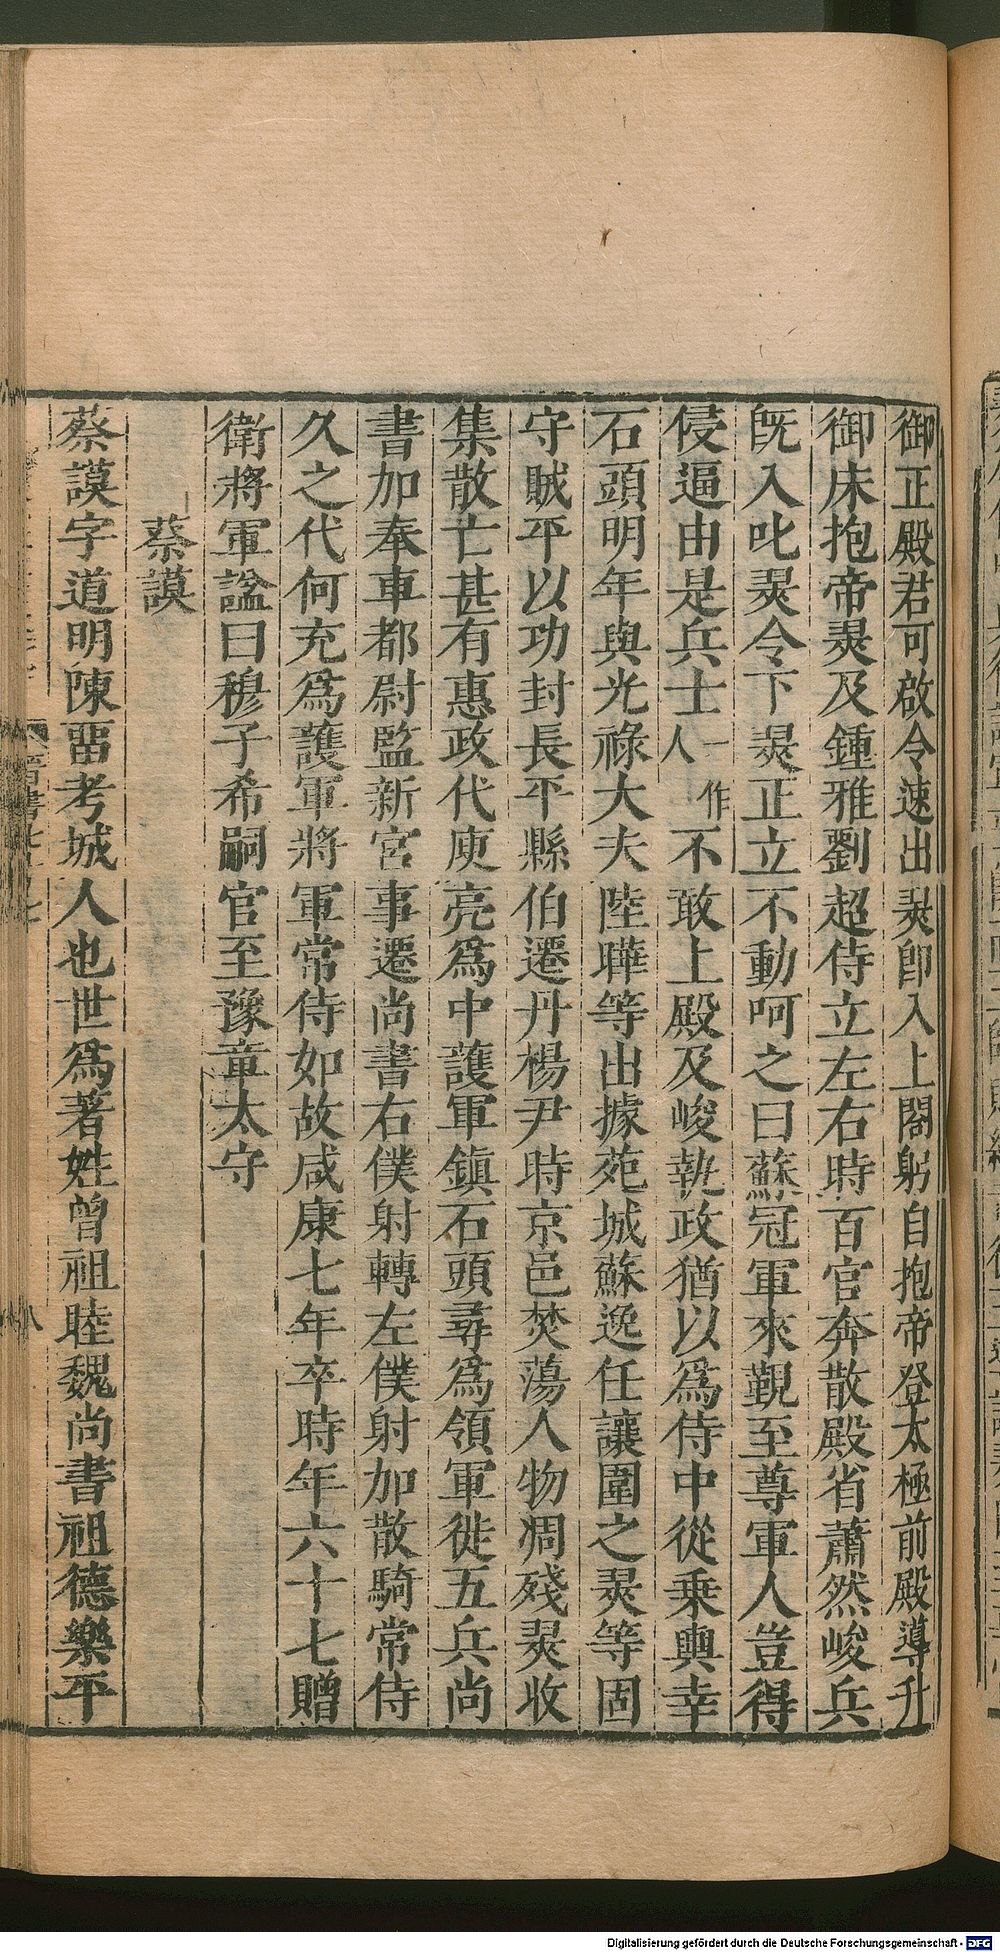 御正殿君可啟令速出翜卽入上閤躬自抱帝登太極前殿導升
御床抱帝翜及鍾雅劉超侍立左右時百官奔散殿省蕭然峻兵
旣入叱翜令下翜正立不動呵之曰蘇冠軍來覲至尊軍人豈得
侵逼由是兵士一作人不敢上殿及峻執政猶以爲侍中從乗輿幸
石頭明年與光祿大夫陸曄等出據苑城蘇逸任讓圍之翜等固
守賊平以功封長平縣伯遷丹楊尹時京邑焚蕩人物凋殘翜收
集散亡甚有惠政代庾亮爲中護軍鎮石頭尋爲領軍徙五兵尚
書加奉車都尉監新宮事遷尚書右僕射轉左僕射加散騎常侍
久之代何充爲護軍將軍常侍如故咸康七年卒時年六十七贈
衛將軍諡曰穆子希嗣官至豫章太守
蔡謨
蔡謨字道明陳畱考城人也世爲著姓曾祖睦魏尚書祖德樂平
Digitalisierung gefördert durch die Deutsche Forschungsgemeinschaft - DFG